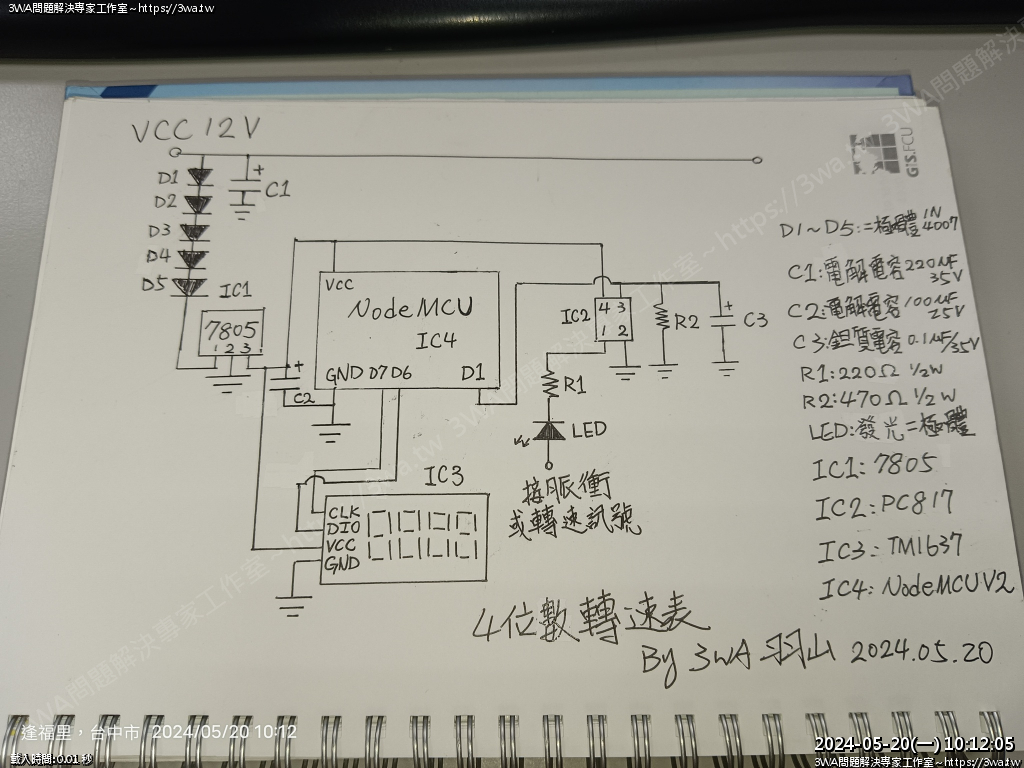 3WA問題解決專家工作室~https://3wa.tw
VCC 12V
GIS.FCU
D1
D2
D3
D4
D5
C1
IC1
7805
1 2 3
C2
VCC
NodeMCU
IC4
GND D7 D6 D1
IC2
4 3
1 2
R2
C3
R1
LED
接脈衝
或轉速訊號
IC3
CLK
DIO
VCC
GND
D1~D5:二極體 1N4007
C1:電解電容 220uF 35V
C2:電解電容 100uF 25V
C3:鉭質電容 0.1uF/35V
R1:220Ω 1/2W
R2:470Ω 1/2W
LED:發光二極體
IC1:7805
IC2:PC817
IC3:TM1637
IC4:NodeMCU V2
4位數轉速表
By 3WA 羽山 2024.05.20
逢福里，台中市 2024/05/20 10:12
載入時間:0.01 秒
2024-05-20(一) 10:12:05
3WA問題解決專家工作室~https://3wa.tw